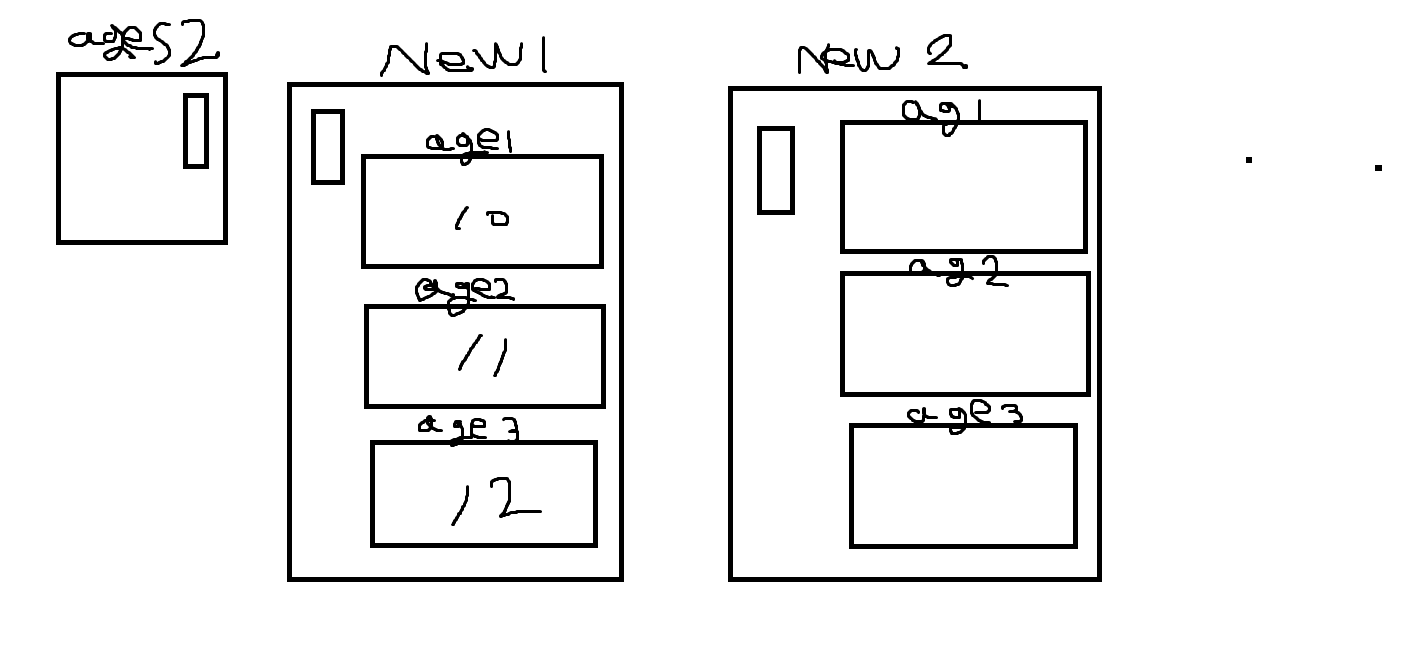 ages2
New1
New 2
age1
10
age2
11
age3
12
ag1
ag2
age3